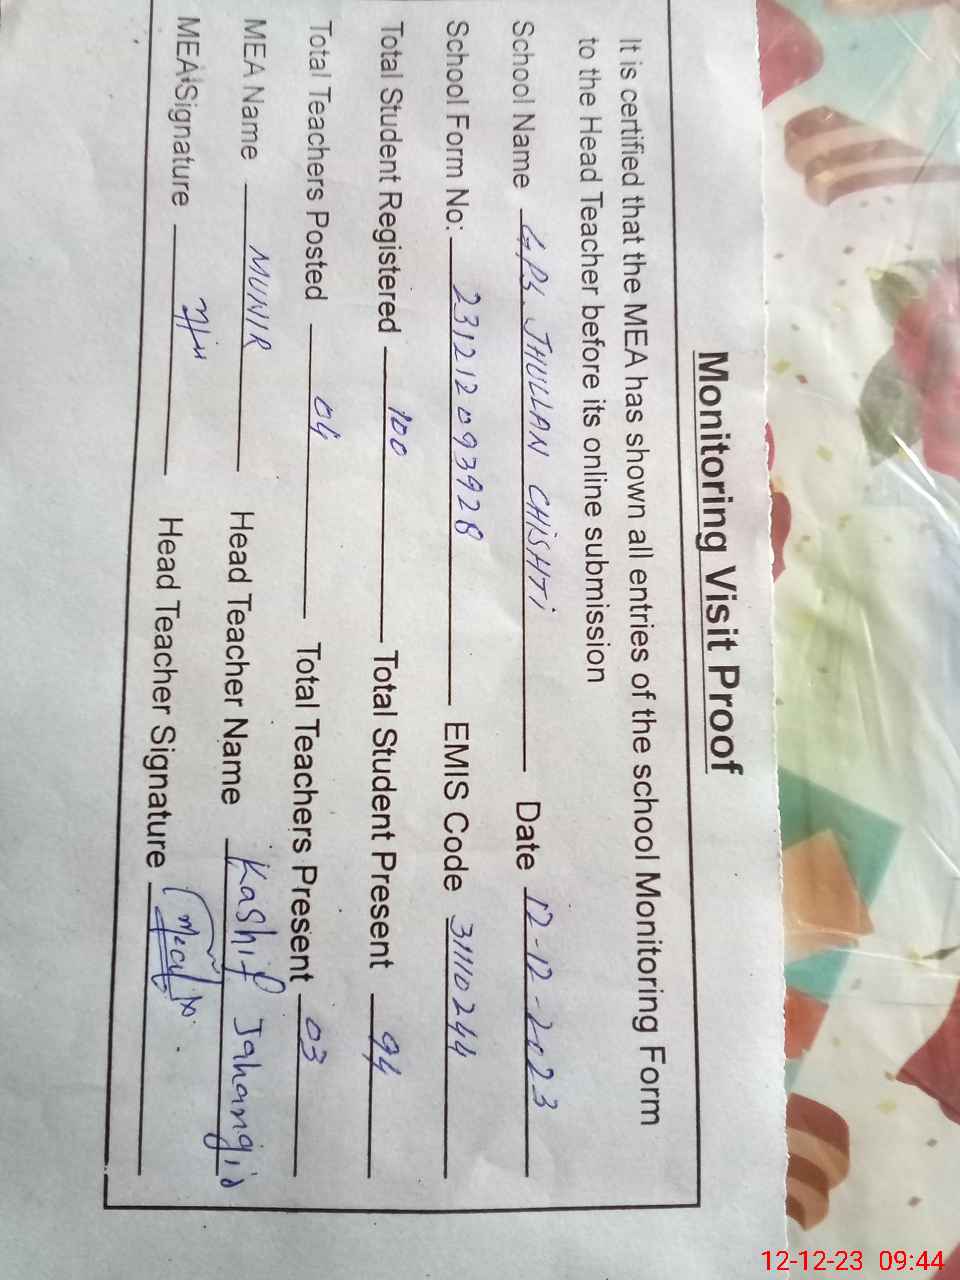 Monitoring Visit Proof
It is certified that the MEA has shown all entries of the school Monitoring Form
to the Head Teacher before its online submission
School Name GPS JHULLAN CHISHTI Date 12-12-2023
School Form No: 231212093928 EMIS Code 31110244
Total Student Registered 100 Total Student Present 94
Total Teachers Posted 04 Total Teachers Present 03
MEA Name MUNIR Head Teacher Name Kashif Jahangir
MEA Signature Head Teacher Signature
12-12-23 09:44